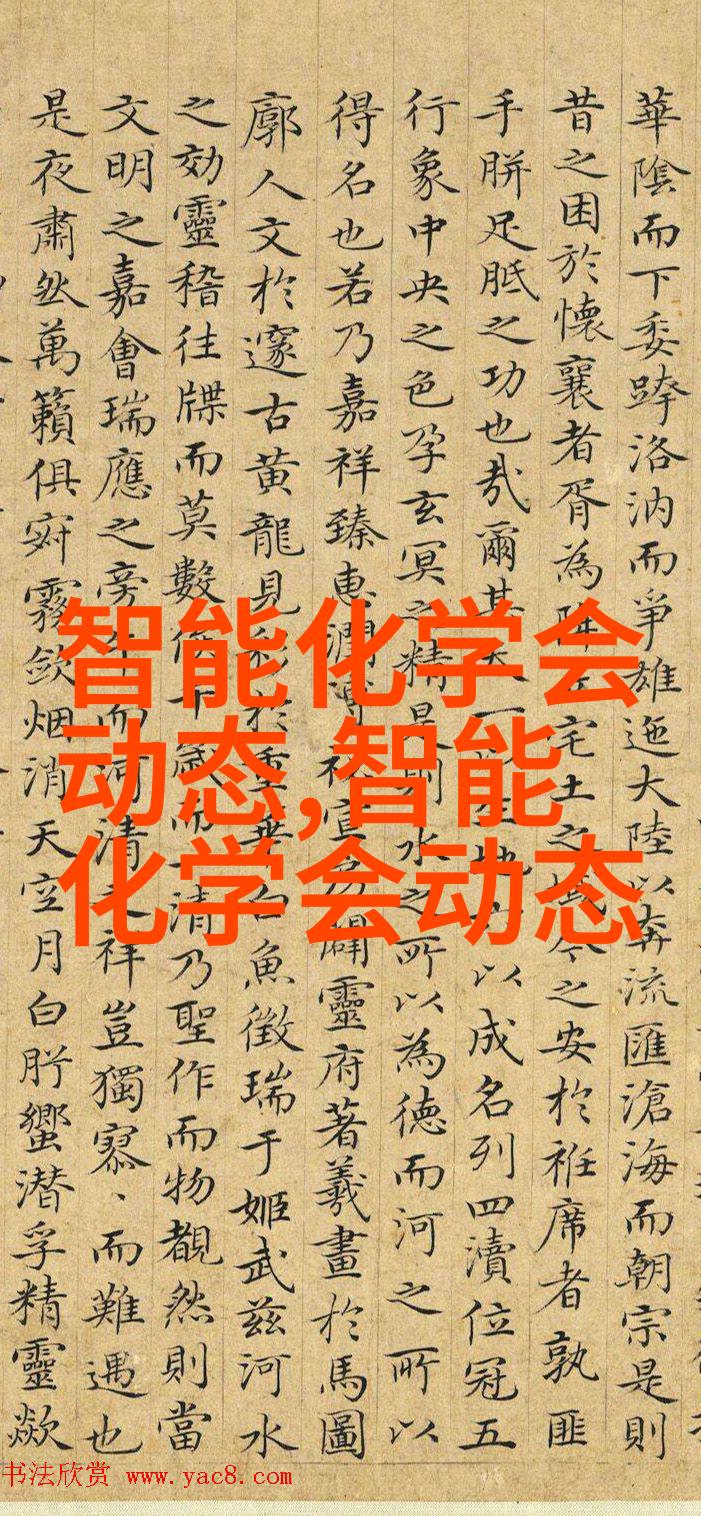 華陰而下委跨洛汭而爭雄迤大陸以奔流匯滄海而朝宗是則
昔之困於懷襄者胥為降丘宅土之域今之安於袵席者孰匪
手胼足胝之功也哉爾其天一以生地六以成名列四瀆位冠五
行象中央之色孕玄冥之精是則水之所以為德而河之所以
得名也若乃嘉祥臻惠潤溥祕宣易闢靈府著羲畫於馬圖
廓人文於邃古黃龍見彩於重華白魚徵瑞于姬武茲河水
之効靈稽往牒而莫數俟千歲而一清乃聖作而物覩然則當
文明之嘉會瑞應之旁午而河清之祥豈獨寥、而難遇也
是夜肅然萬籟俱寂霧斂烟消天空月白肸蠁潛孚精靈歘
智能化学会
动态,智能
化学会动态
书法欣赏 www.yac8.com